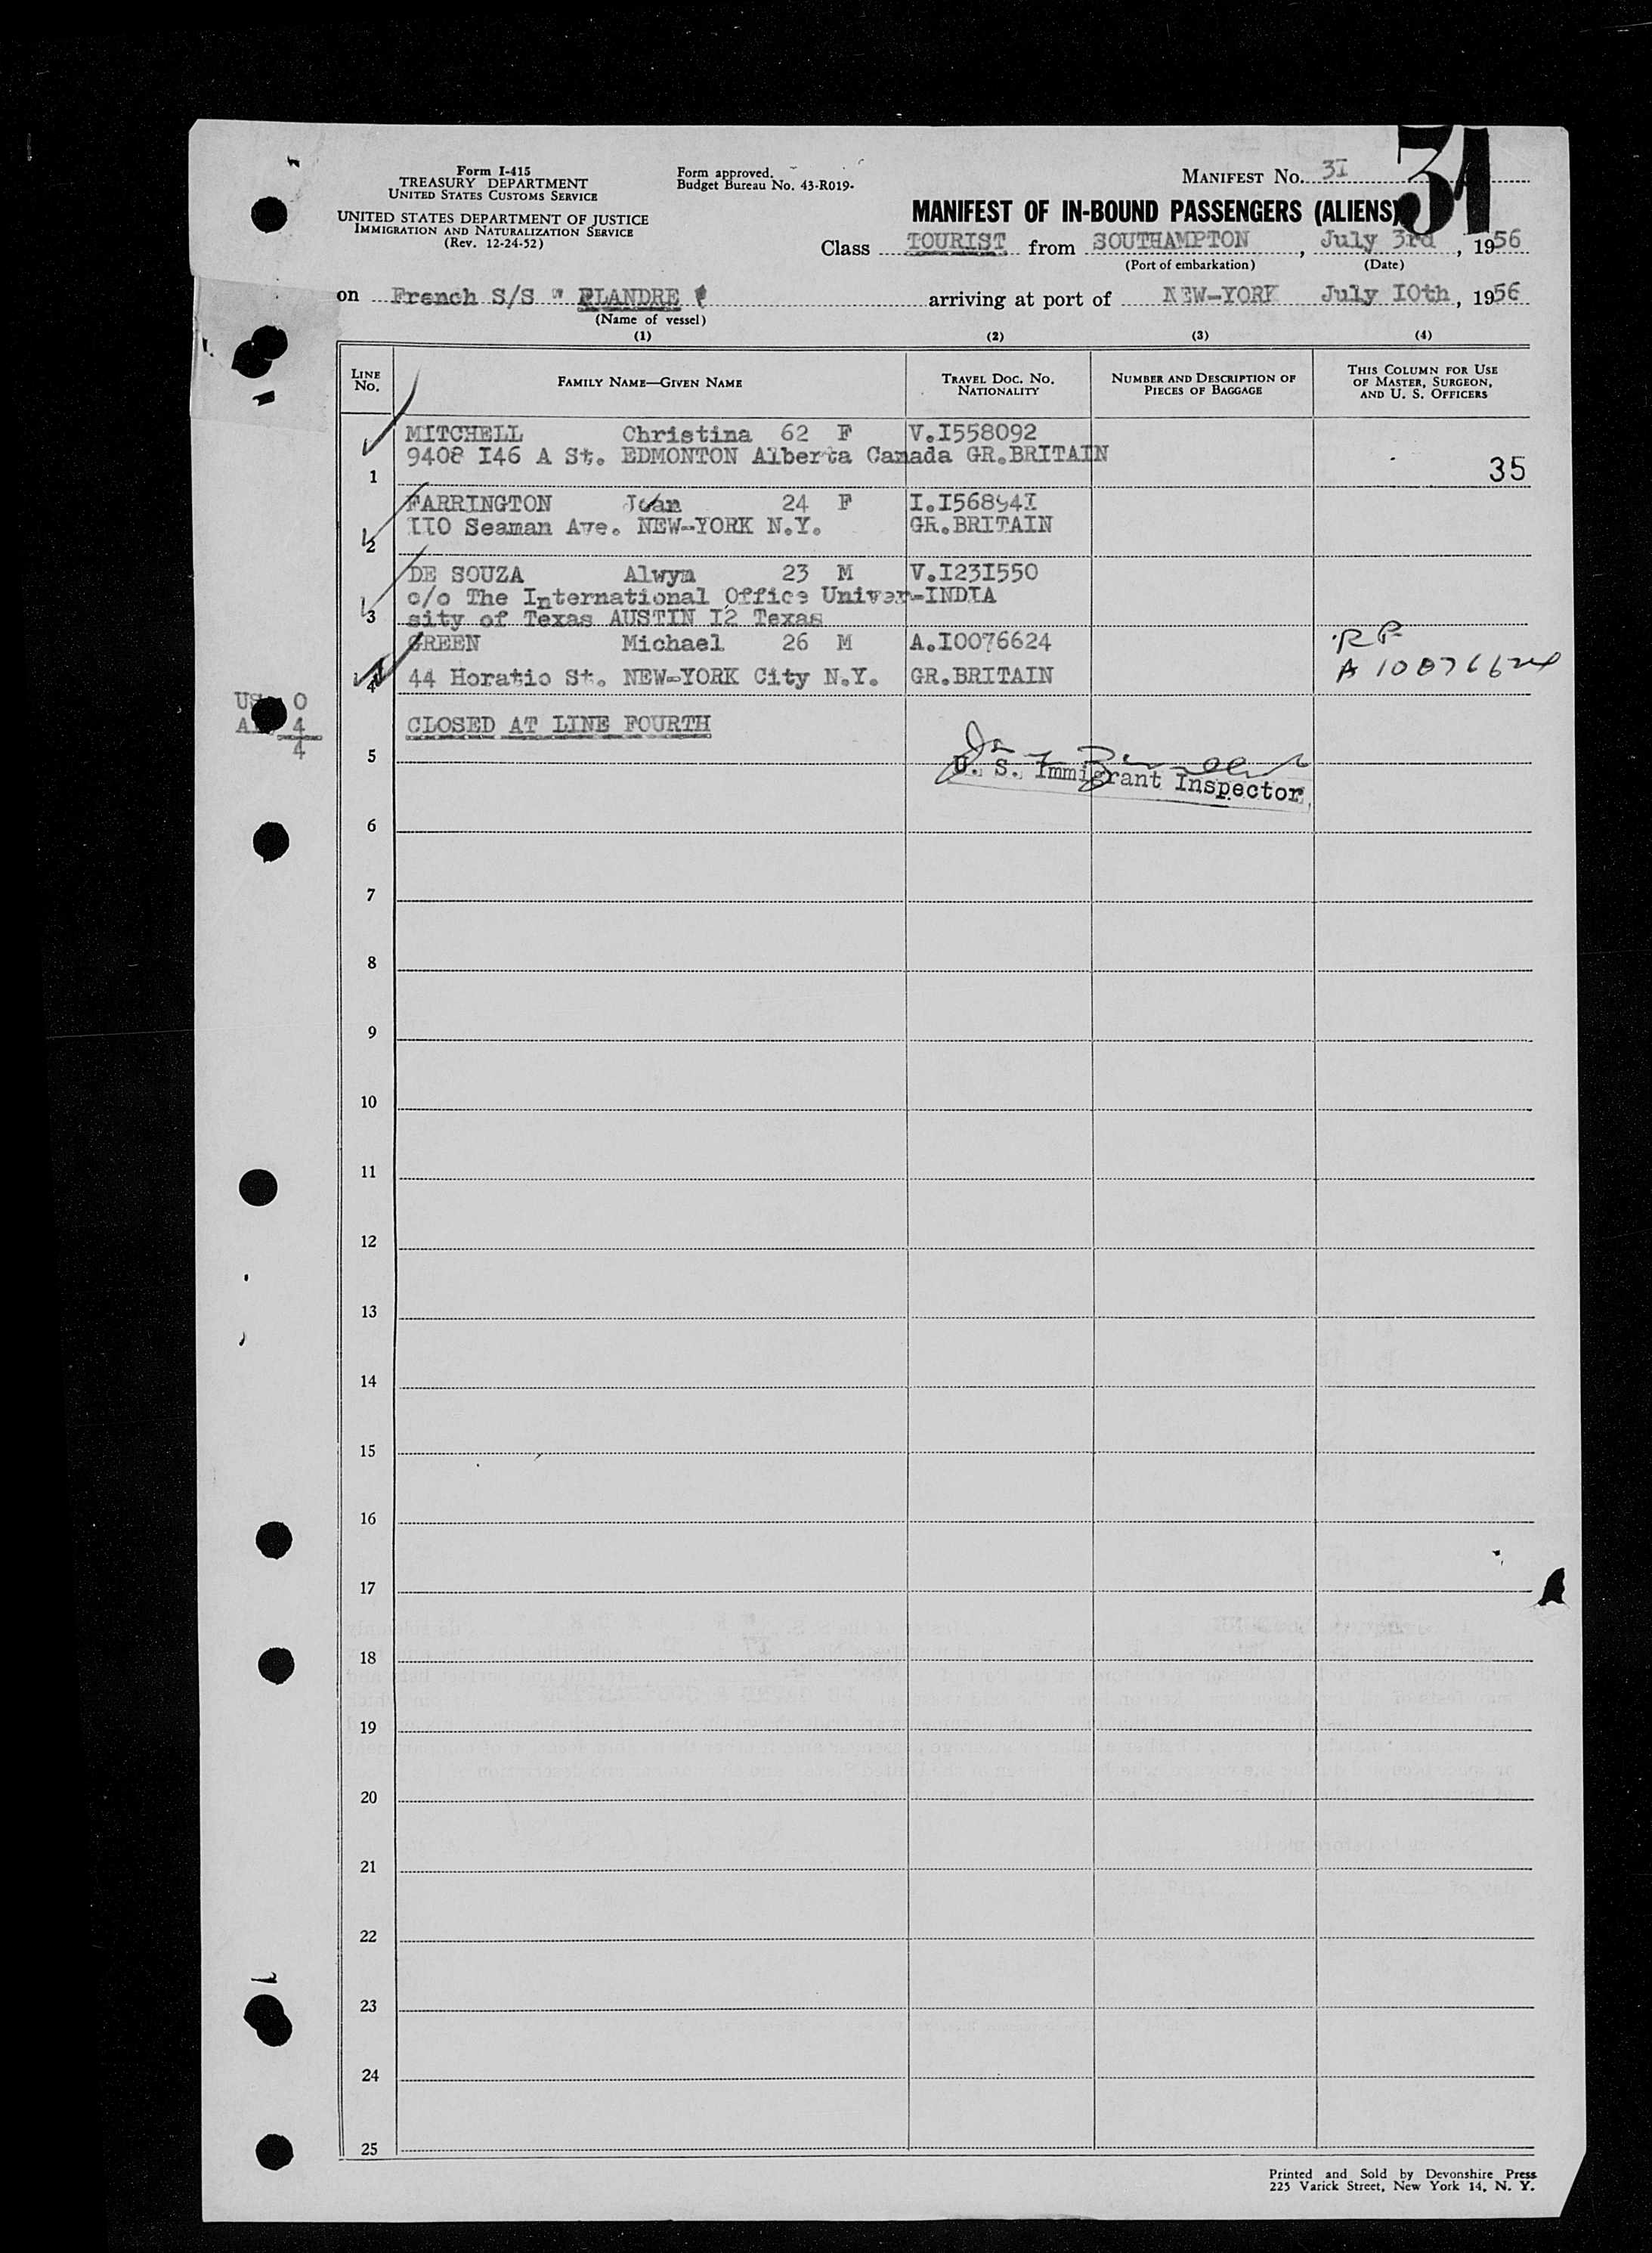 31
Form I-415
TREASURY DEPARTMENT
UNITED STATES CUSTOMS SERVICE
UNITED STATES DEPARTMENT OF JUSTICE
IMMIGRATION AND NATURALIZATION SERVICE
(Rev. 12-24-52)
Form approved.
Budget Bureau No. 43-R019-
MANIFEST No. 3I
MANIFEST OF IN-BOUND PASSENGERS (ALIENS)
Class TOURIST from SOUTHAMPTON, July 3rd, 1956
(Port of embarkation) (Date)
on French S/S " FLANDRE " arriving at port of NEW-YORK July I0th, 1956
(Name of vessel)
(1) (2) (3) (4)
LINE No. FAMILY NAME—GIVEN NAME TRAVEL DOC. NO. NATIONALITY NUMBER AND DESCRIPTION OF PIECES OF BAGGAGE THIS COLUMN FOR USE OF MASTER, SURGEON, AND U. S. OFFICERS
MITCHELL Christina 62 F V.I558092
9408 I46 A St. EDMONTON Alberta Canada GR.BRITAIN
1 35
FARRINGTON Joan 24 F I.I56894I
II0 Seaman Ave. NEW-YORK N.Y. GR.BRITAIN
2
DE SOUZA Alwyn 23 M V.I23I550
c/o The International Office Univer-INDIA
3 sity of Texas AUSTIN I2 Texas
GREEN Michael 26 M A.I0076624 RP
4 44 Horatio St. NEW-YORK City N.Y. GR.BRITAIN A 10076624
US 0
4
4
CLOSED AT LINE FOURTH
5
U. S. Immigrant Inspector
6
7
8
9
10
11
12
13
14
15
16
17
18
19
20
21
22
23
24
25
Printed and Sold by Devonshire Press
225 Varick Street, New York 14, N. Y.